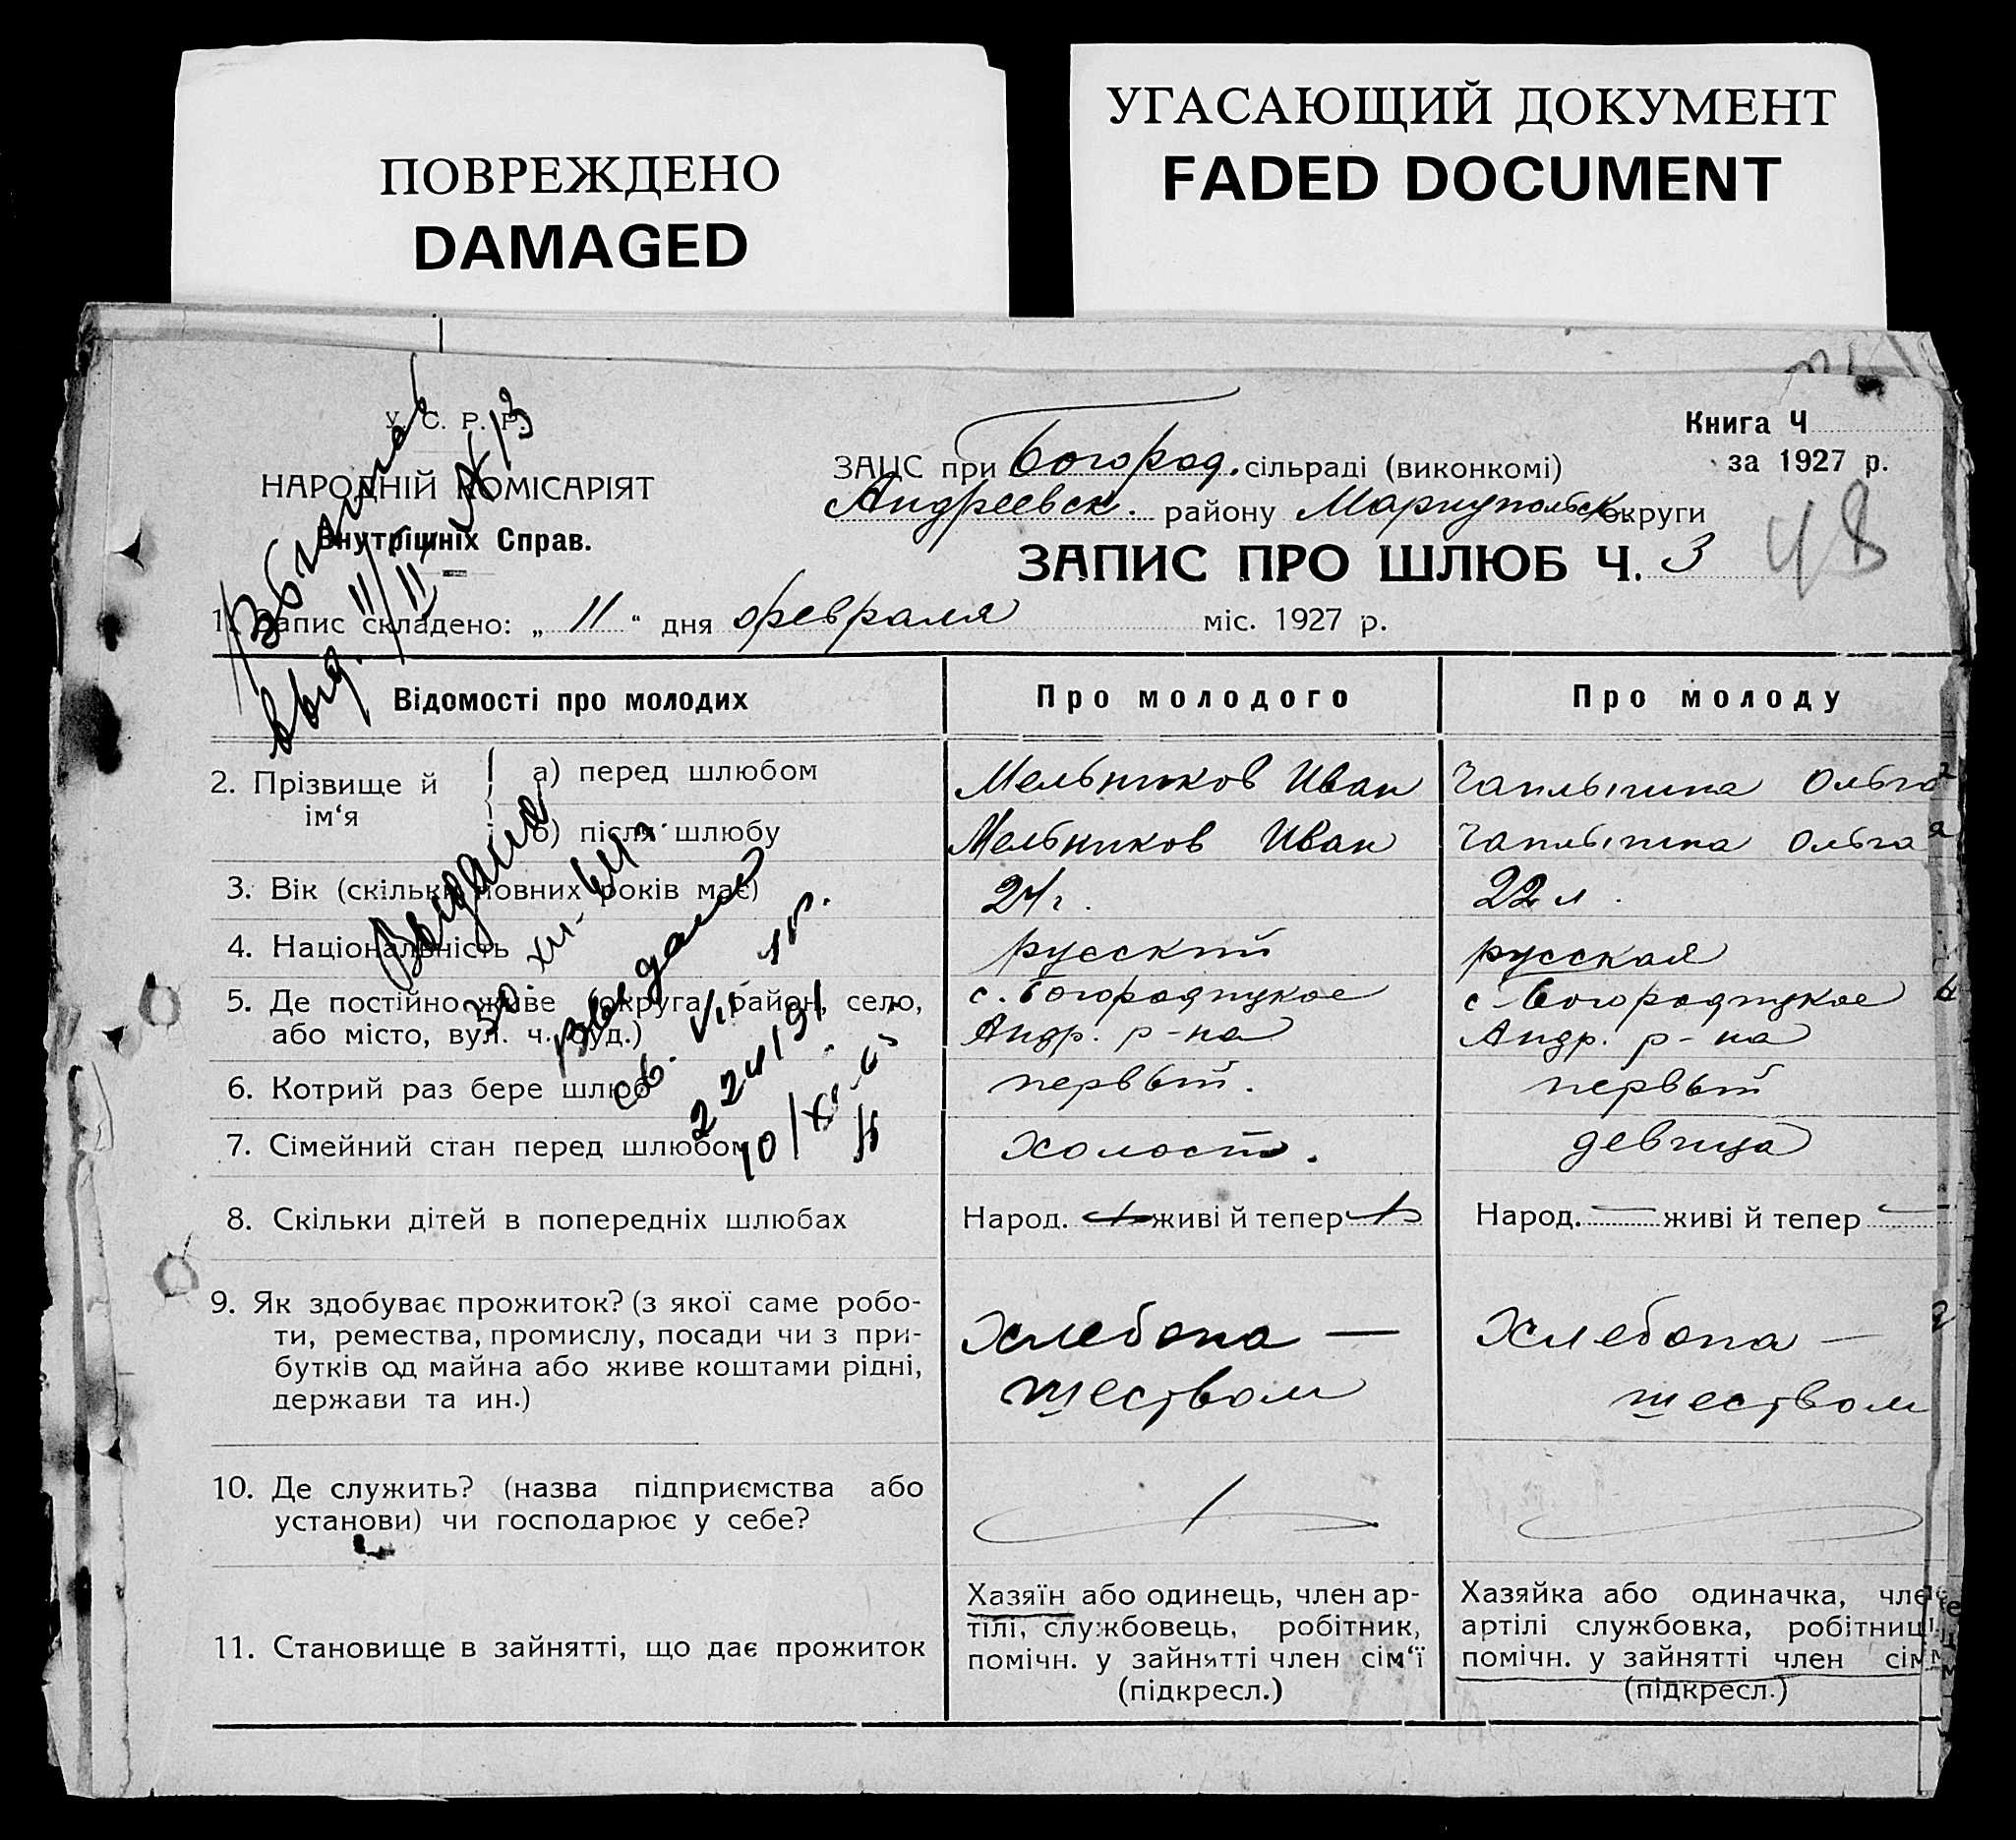 ПОВРЕЖДЕНО
DAMAGED
УГАСАЮЩИЙ ДОКУМЕНТ
FADED DOCUMENT
У. С. Р. Р.
НАРОДНІЙ КОМІСАРІЯТ
Внутрішніх Справ.
Книга Ч
за 1927 р.
ЗАЦС при Богород. сільраді (виконкомі)
Андреевск. району Мариупольск округи
48
ЗАПИС ПРО ШЛЮБ Ч. 3
1. Запис складено: „ 11 “ дня февраля міс. 1927 р.
Відомості про молодих Про молодого Про молоду
2. Прізвище й ім‘я
а) перед шлюбом Мельников Иван Чаплыгина Ольга
б) після шлюбу Мельников Иван Чаплыгина Ольга
3. Вік (скільки повних років має) 24 г. 22 л.
4. Національність русский русская
5. Де постійно живе (округа, район, село, с. Богородицкое с. Богородицкое
або місто, вул. ч. буд.) Андр. р-на Андр. р-на
6. Котрий раз бере шлюб первый. первый
7. Сімейний стан перед шлюбом холост. девица
8. Скільки дітей в попередніх шлюбах Народ. живі й тепер Народ. — живі й тепер —
9. Як здобуває прожиток? (з якої саме робо-
ти, ремества, промислу, посади чи з при- Хлебопа — Хлебопа —
бутків од майна або живе коштами рідні,
держави та ин.) шеством шеством
10. Де служить? (назва підприємства або
установи) чи господарює у себе?
11. Становище в зайнятті, що дає прожиток
Хазяїн або одинець, член ар-
тілі, службовець, робітник,
помічн. у зайнятті член сім‘ї
(підкресл.)
Хазяйка або одиначка, чле
артілі службовка, робітниц
помічн. у зайнятті член сім
(підкресл.)
Выдано
выдано